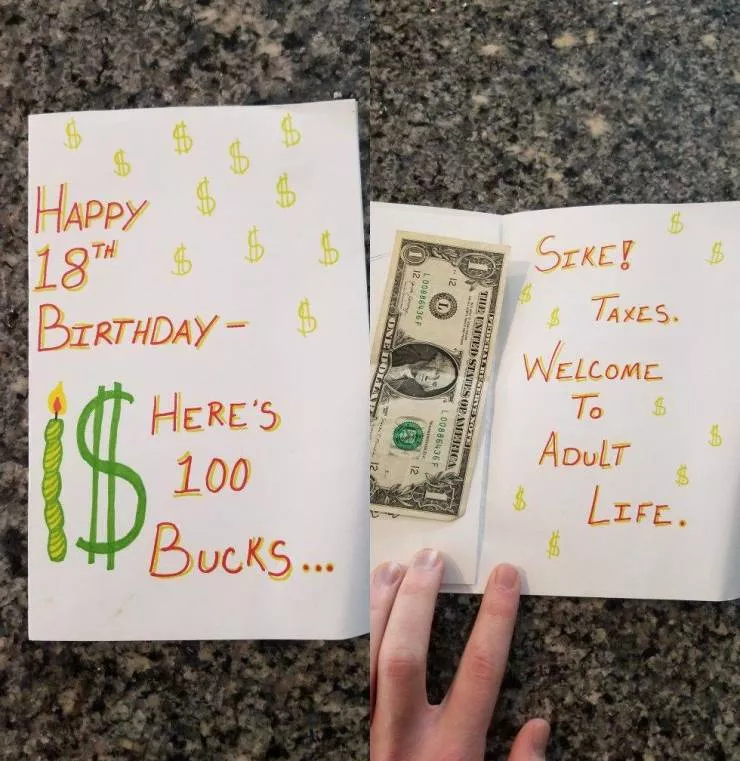 HAPPY
18TH
BIRTHDAY-
HERE'S
100
BUCKS...
SIKE!
TAXES.
WELCOME
TO
ADULT
LIFE.
THE UNITED STATES OF AMERICA
L00886436F
L00886436F
12
12
12
1
1
1